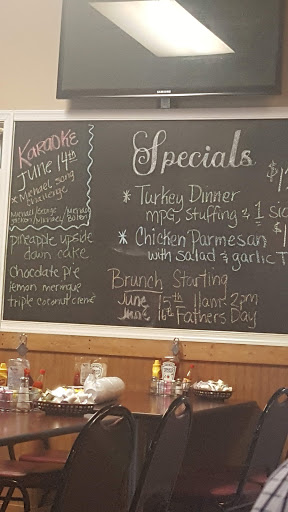 SAMSUNG
KARAOKE
JUNE 14th
* Michael Song
Challenge
Michael/George
Jackson/Michael/Michael
Bolton
pineapple upside
down cake
chocolate pie
lemon meringue
triple coconut creme
Specials
* Turkey Dinner $1
mpg, stuffing & 1 sid
* Chicken Parmesan $1
with salad & garlic T
Brunch Starting
June 15th 11am-2pm
June 16th Fathers Day